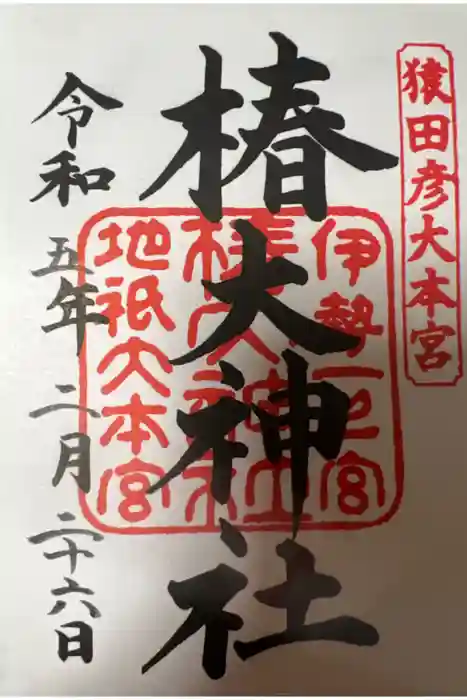 猿田彦大本宮
椿大神社
伊勢一之宮
椿大神社
地祇大本宮
令和五年二月二十六日